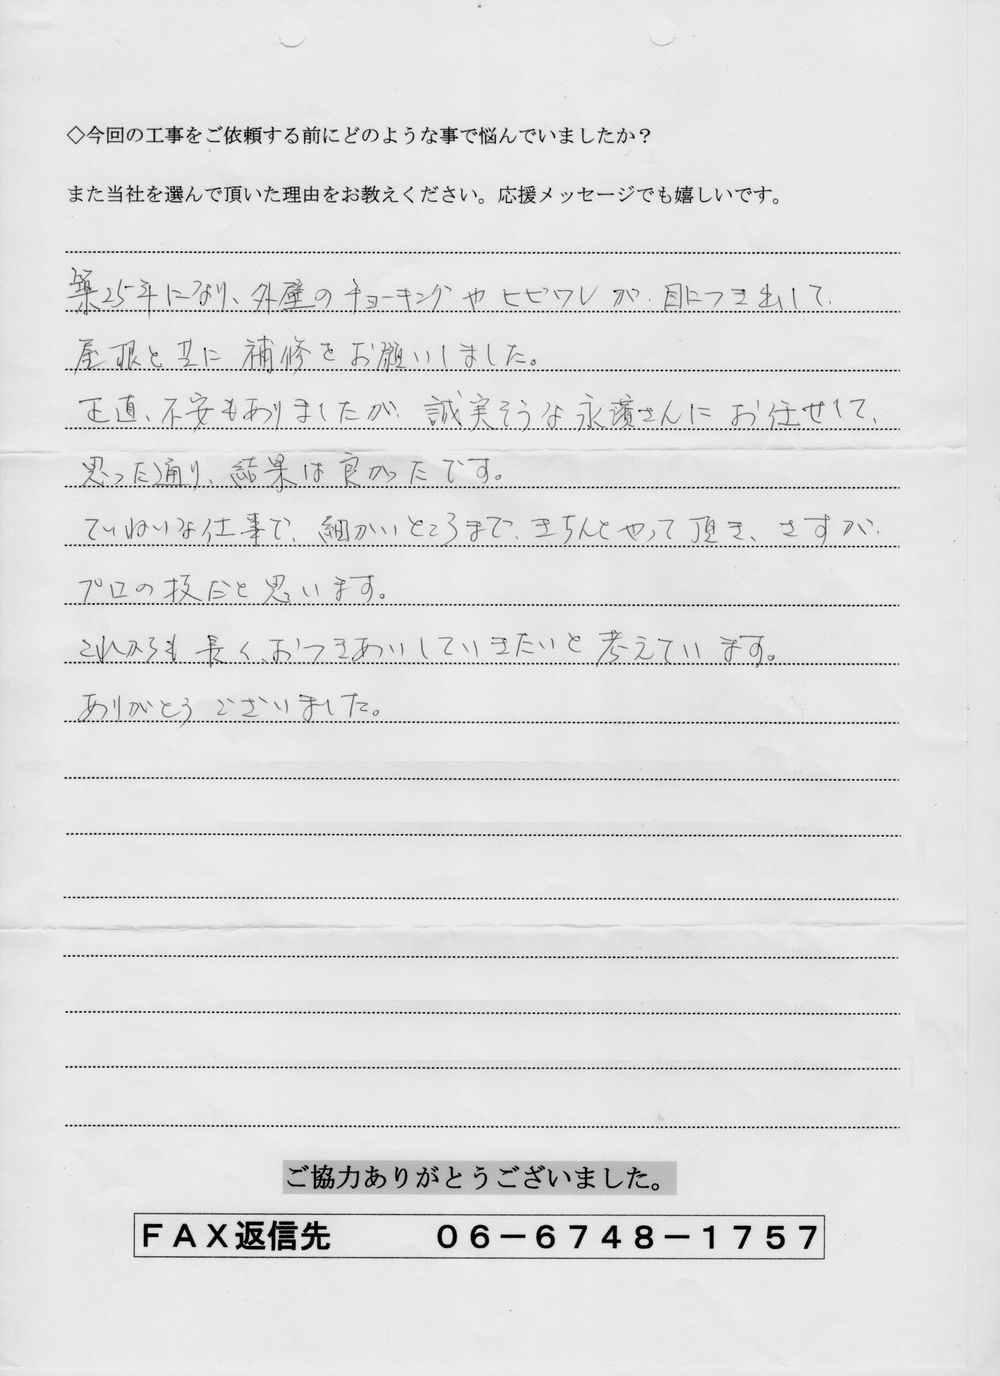 ◇今回の工事をご依頼する前にどのような事で悩んでいましたか？
また当社を選んで頂いた理由をお教えください。応援メッセージでも嬉しいです。
築25年になり、外壁のチョーキングやヒビワレが、目につき出して、
屋根と共に補修をお願いしました。
正直、不安もありましたが、誠実そうな永濱さんにお任せして、
思った通り、結果は良かったです。
ていねいな仕事で、細かいところまで、きちんとやって頂き、さすが、
プロの技だと思います。
これからも長く、おつきあいしていきたいと考えています。
ありがとうございました。
ご協力ありがとうございました。
ＦＡＸ返信先　０６－６７４８－１７５７